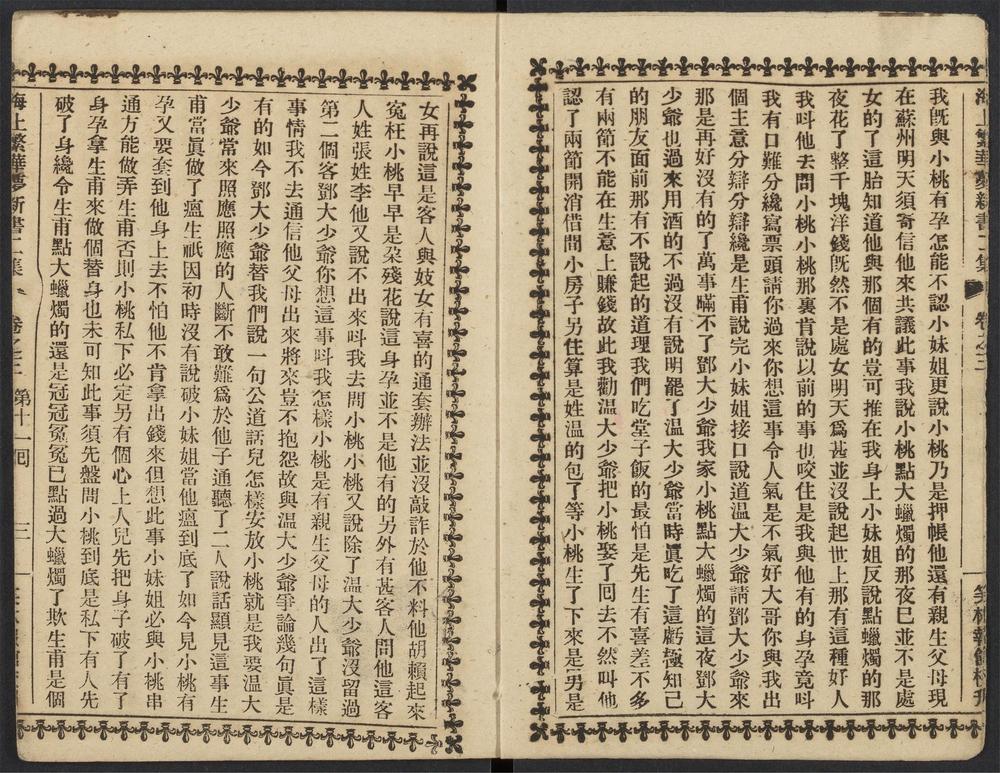 海上繁華夢新書二集
卷之三
笑林報館校刊
我旣與小桃有孕怎能不認小妹姐更說小桃乃是押帳他還有親生父母現
在蘇州明天須寄信他來共議此事我說小桃點大蠟燭的那夜已並不是處
女的了這胎知道他與那個有的豈可推在我身上小妹姐反說點蠟燭的那
夜花了整千塊洋錢旣然不是處女明天爲甚並沒說起世上那有這種好人
我呌他去問小桃小桃那裏肯說以前的事也咬住是我與他有的身孕竟呌
我有口難分纔寫票頭請你過來你想這事令人氣是不氣好大哥你與我出
個主意分辯分辯纔是生甫說完小妹姐接口說道温大少爺請鄧大少爺來
那是再好沒有的了萬事瞞不了鄧大少爺我家小桃點大蠟燭的這夜鄧大
少爺也過來用酒的不過沒有說明罷了温大少爺當時眞吃了這虧極知己
的朋友面前那有不說起的道理我們吃堂子飯的最怕是先生有喜差不多
有兩節不能在生意上賺錢故此我勸温大少爺把小桃娶了回去不然叫他
認了兩節開消借間小房子另住算是姓温的包了等小桃生了下來是男是
女再說這是客人與妓女有喜的通套辦法並沒敲詐於他不料他胡賴起來
冤枉小桃早早是朵殘花說這身孕並不是他有的另外有甚客人問他這客
人姓張姓李他又說不出來呌我去問小桃小桃又說除了温大少爺沒留過
第二個客鄧大少爺你想這事呌我怎樣小桃是有親生父母的人出了這樣
事情我不去通信他父母出來將來豈不抱怨故與温大少爺爭論幾句眞是
有的如今鄧大少爺替我們說一句公道話兒怎樣安放小桃就是我要温大
少爺當來照應照應的人斷不敢難爲於他子通聽了二人說話顯見這事生
甫當眞做了瘟生祇因初時沒有說破小妹姐當他瘟到底了如今見小桃有
孕又要套到他身上去不怕他不肯拿出錢來但想此事小妹姐必與小桃串
通方能做弄生甫否則小桃私下必定另有個心上人兒先把身子破了有了
身孕拿生甫來做個替身也未可知此事須先盤問小桃到底是私下有人先
破了身纔令生甫點大蠟燭的還是冠冠冤冤已點過大蠟燭了欺生甫是個
海上繁華夢新書二集
卷之三
第十一回
三